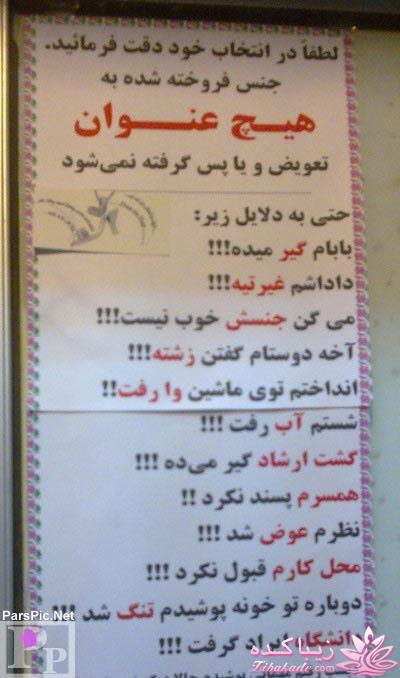 لطفاً در انتخاب خود دقت فرمائید.
جنس فروخته شده به
هیـچ عنـــوان
تعویض و یا پس گرفته نمی‌شود
حتی به دلایل زیر:
بابام گیر میده!!!
داداشم غیرتیه!!!
می گن جنسش خوب نیست!!!
آخه دوستام گفتن زشته!!!
انداختم توی ماشین وا رفت!!
شستم آب رفت !!!
گشت ارشاد گیر می‌ده !!!
همسرم پسند نکرد !!
نظرم عوض شد !!!
محل کارم قبول نکرد !!!
دوباره تو خونه پوشیدم تنگ شد !!!
دانشگاه ایراد گرفت !!!
ParsPic.Net
PP
زیباکده
Zibakade.com